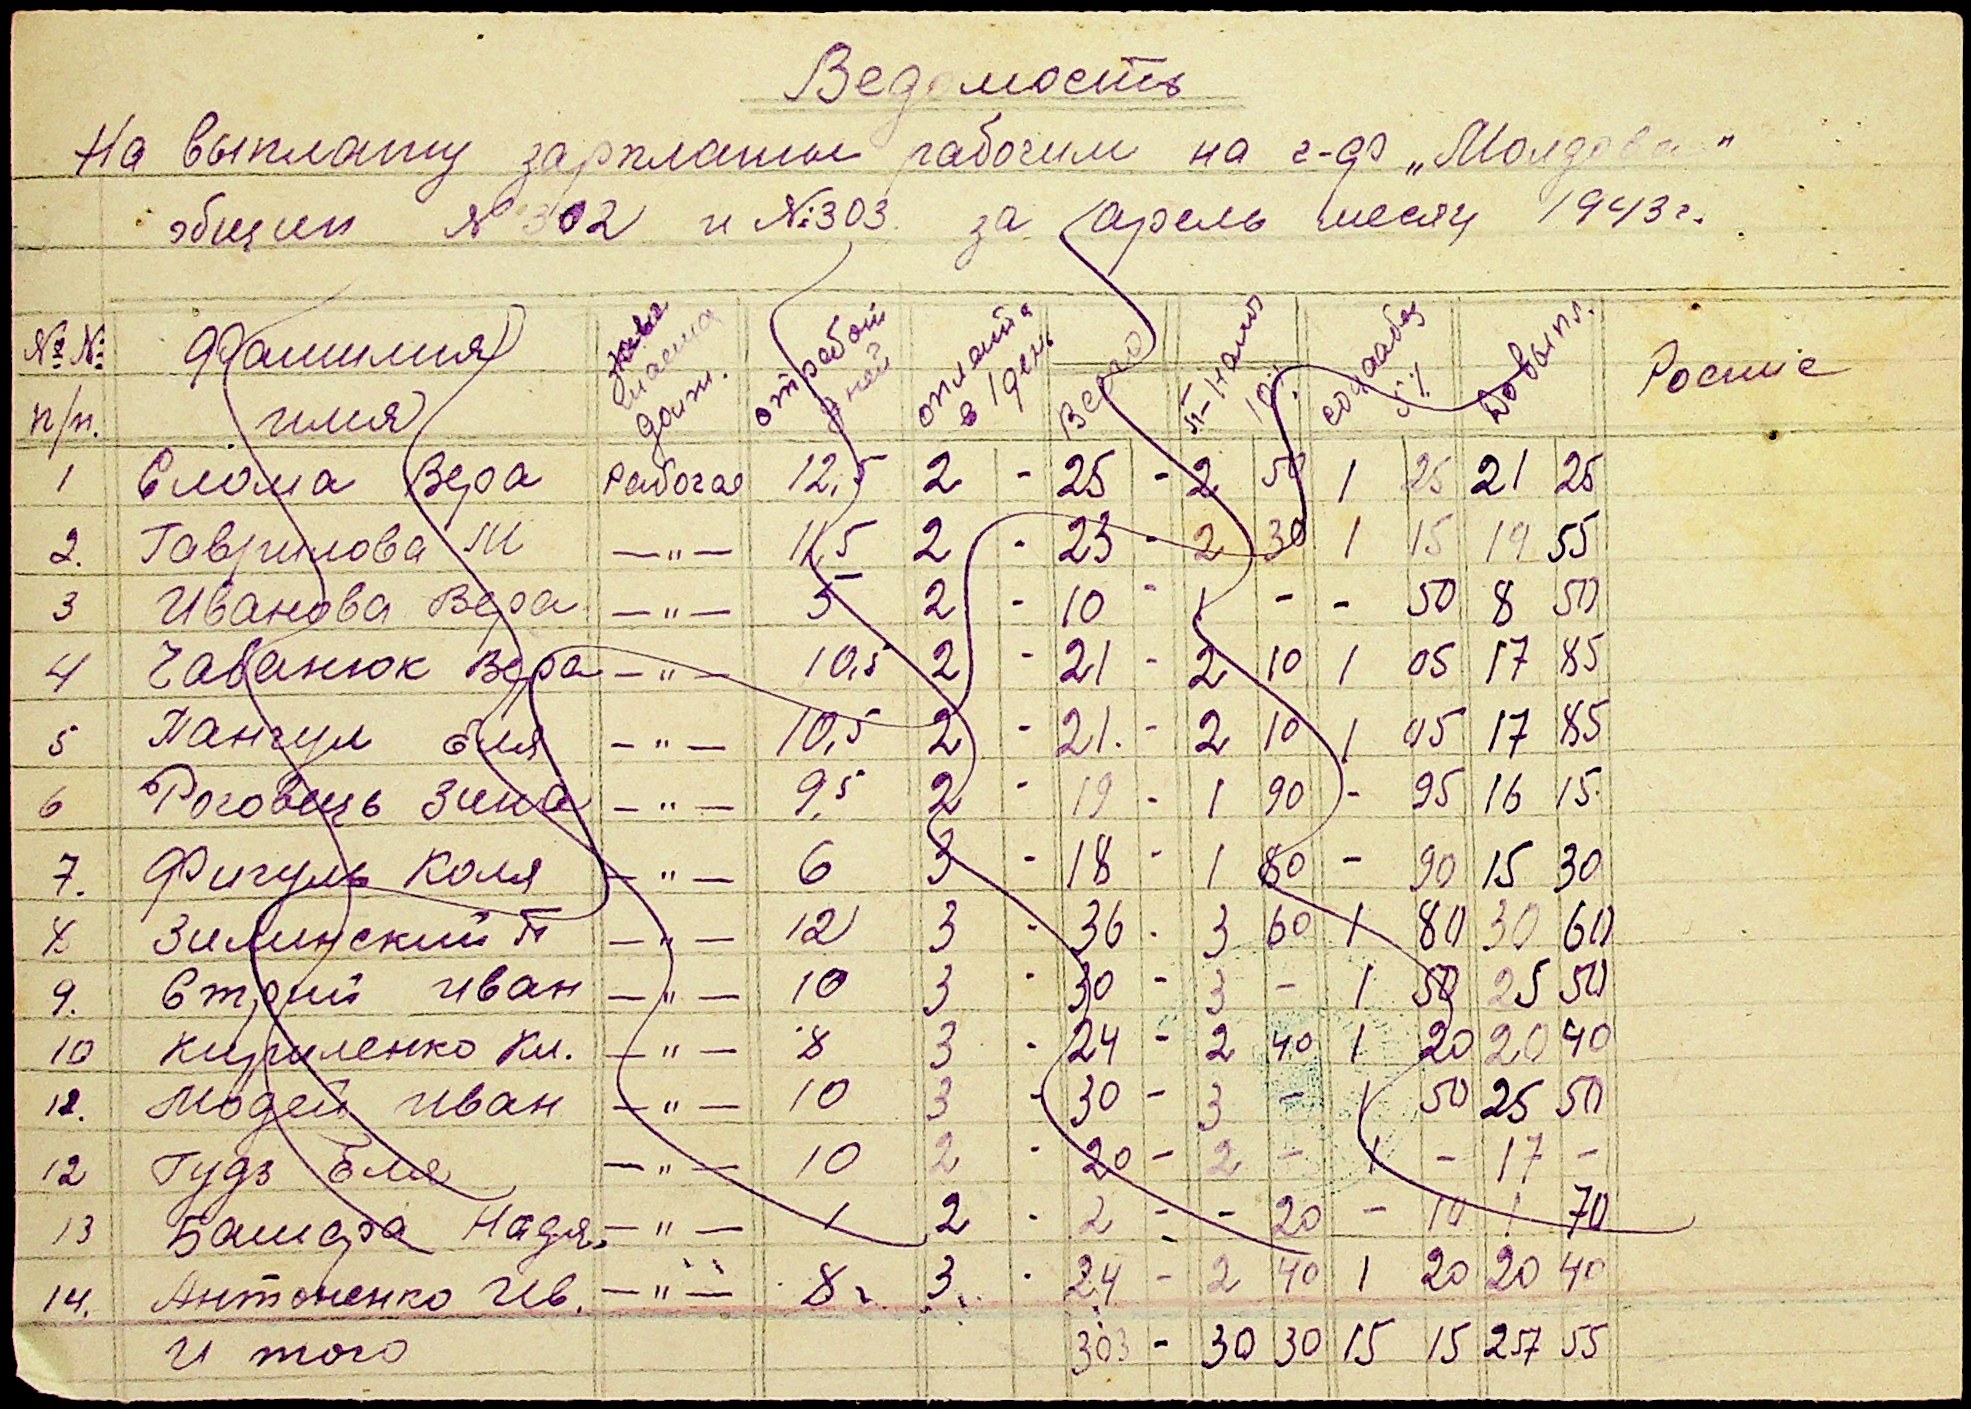 Ведомость
На выплату зарплаты рабочим на г-др „Молдова"
общин № 302 и №303 за апрель месяц 1943 г.
№ № Фамилия отработ оплата Всего П-налог соцзабез До выпл. Роспис
п/п. имя должн. дней в 1 день 10% 5%
1 Слома Вера Рабочая 12,5 2 - 25 - 2 50 1 25 21 25
2. Гаврилова М —"— 11,5 2 - 23 - 2 30 1 15 19 55
3 Иванова Вера —"— 5 2 - 10 - 1 - - 50 8 50
4 Чабанюк Вера —"— 10,5 2 - 21 - 2 10 1 05 17 85
5 Пангул Еля —"— 10,5 2 - 21. - 2 10 1 05 17 85
6 Роговець Зина —"— 9,5 2 - 19 - 1 90 - 95 16 15
7. Фигуль Коля —"— 6 3 - 18 - 1 80 - 90 15 30
8 Зилинский П —"— 12 3 - 36 - 3 60 1 80 30 60
9. Стрий Иван —"— 10 3 - 30 - 3 - 1 50 25 50
10 Кириленко Кл. —"— 8 3 - 24 - 2 40 1 20 20 40
12. Модей Иван —"— 10 3 - 30 - 3 - 1 50 25 50
12 Гудз Еля —"— 10 2 - 20 - 2 - 1 - 17 -
13 Башара Надя. —"— 1 2 - 2 - - 20 - 10 1 70
14. Антоненко Ив. —"— 8 3 - 24 - 2 40 1 20 20 40
И того 303 - 30 30 15 15 257 55